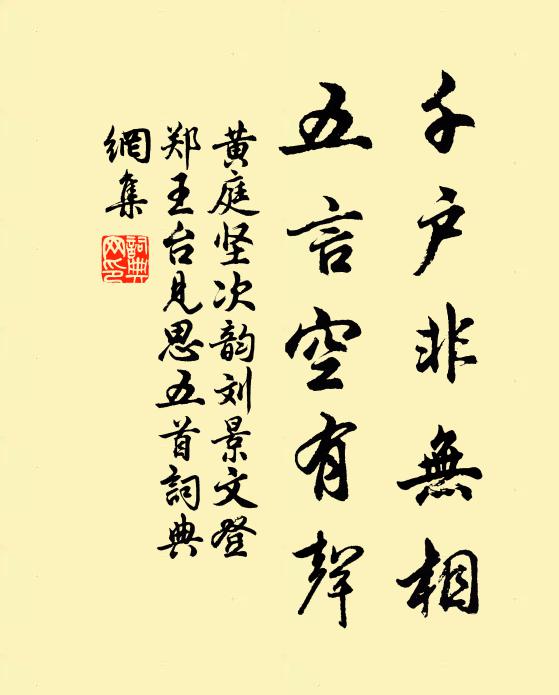 千户非無相
五言空有聲
黄庭坚次韵刘景文登
郑王台見思五首詞典
網集
詞典网印